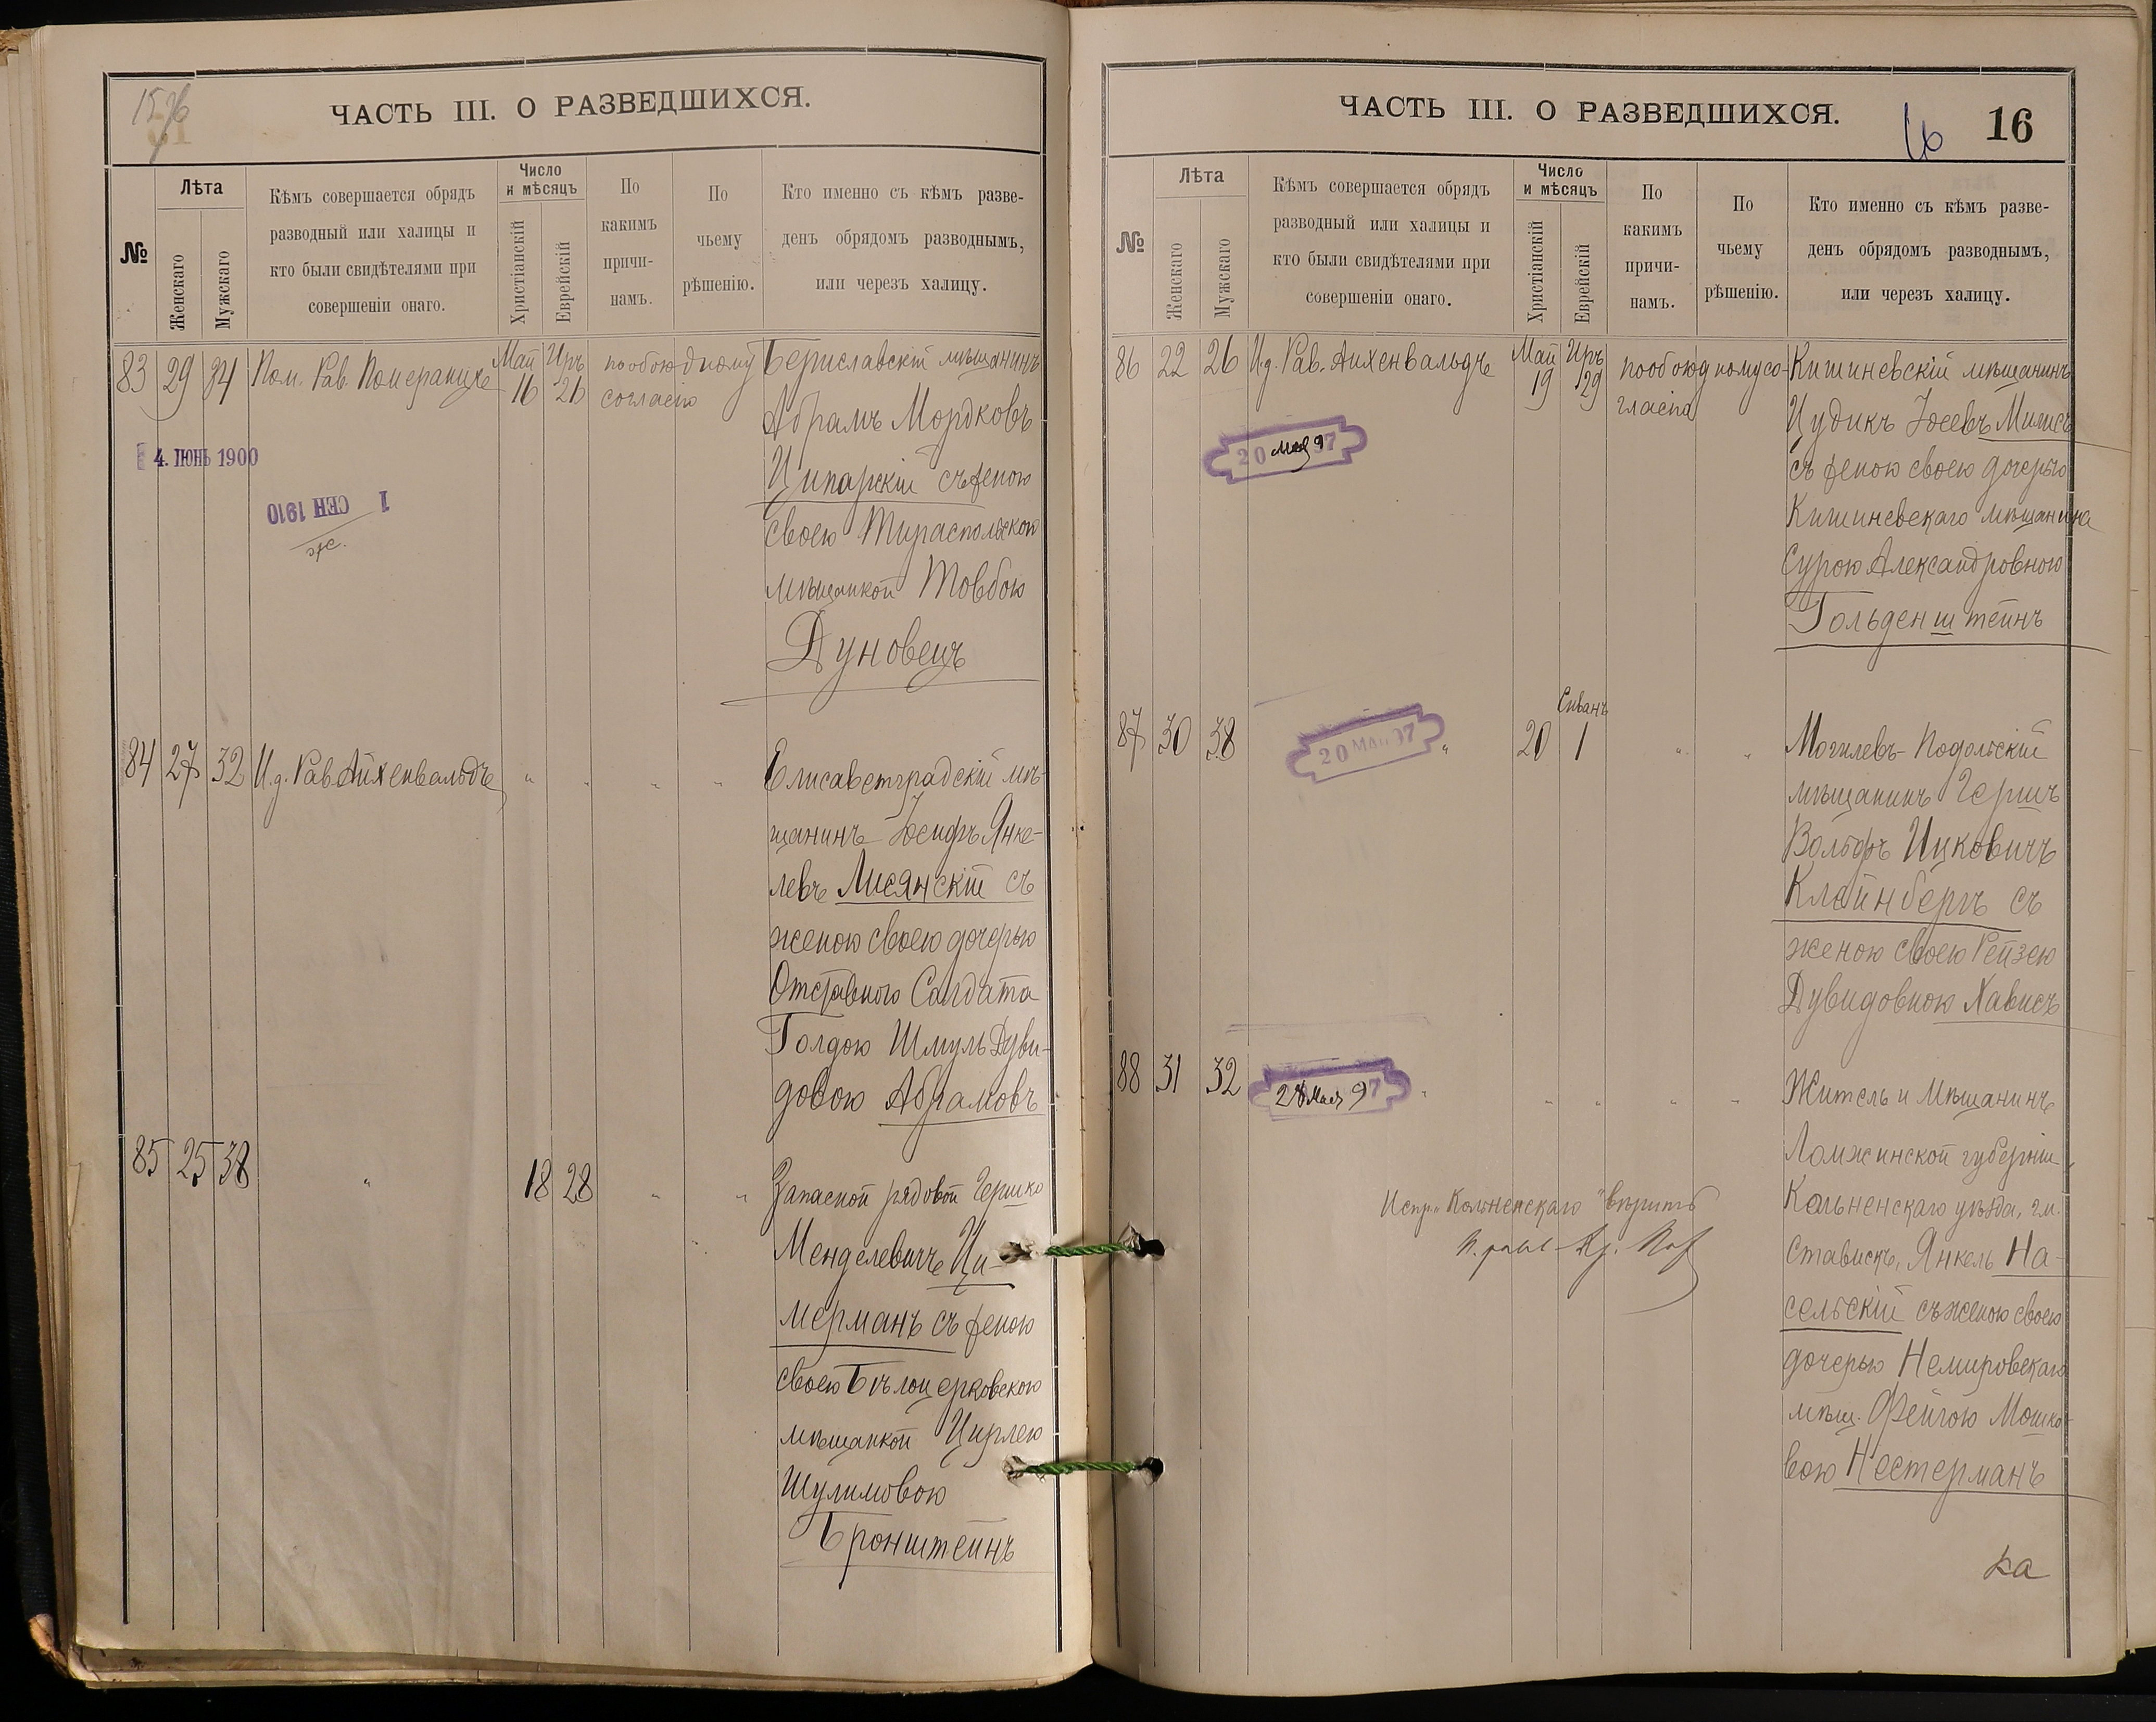 ЧАСТЬ III. О РАЗВЕДШИХСЯ.
№
Лѣта
Женскаго
Мужскаго
Кѣмъ совершается обрядъ
разводный или халицы и
кто были свидѣтелями при
совершеніи онаго.
Число
и мѣсяцъ
Христіанскій
Еврейскій
По
какимъ
причи-
намъ.
По
чьему
рѣшенію.
Кто именно съ кѣмъ разве-
денъ обрядомъ разводнымъ,
или черезъ халицу.
83 29 34 Пом. Рав. Померанцъ Май 16 Иръ 26 по обоюдному
согласію
Бериславскій мѣщанинъ
Абрамъ Мордковъ
Ципарскій съ женою
своею Тираспольскою
мѣщанкой Товбою
Дуновецъ
4. ІЮНЬ 1900
1 СЕН 1910
84 27 32 И.д. Рав. Айхенвальдъ " " " "
Елисаветградскій мѣ-
щанинъ Іосифъ Янке-
левъ Лисянскій съ
женою своею дочерью
Отставного Солдата
Голдою Шмуль Дуви-
довою Абрамовъ
85 25 38 " 18 28 " "
Запасной рядовой Гершко
Менделевичъ Ци-
мерманъ съ женою
своею Бѣлоцерковскою
мѣщанкой Цирлею
Шулимовою
Бронштейнъ
ЧАСТЬ III. О РАЗВЕДШИХСЯ.
16
16
№
Лѣта
Женскаго
Мужскаго
Кѣмъ совершается обрядъ
разводный или халицы и
кто были свидѣтелями при
совершеніи онаго.
Число
и мѣсяцъ
Христіанскій
Еврейскій
По
какимъ
причи-
намъ.
По
чьему
рѣшенію.
Кто именно съ кѣмъ разве-
денъ обрядомъ разводнымъ,
или черезъ халицу.
86 22 26 И.д. Рав. Айхенвальдъ Май 19 Иръ 29 по обоюдному со-
гласію
Кишиневскій мѣщанинъ
Цудикъ Іосевъ Милисъ
съ женою своею дочерью
Кишиневскаго мѣщанина
Сурою Александровною
Гольденштейнъ
20 Мая 97
87 30 38 " 20 Сиванъ 1 " "
Могилевъ-Подольскій
мѣщанинъ Гершъ
Вольфъ Ицковичъ
Клейнбергъ съ
женою своею Рейзею
Дувидовною Хависъ
20 МАЯ 97
88 31 32 " " " " "
Житель и Мѣщанинъ
Ломжинской губерніи
Кольненскаго уѣзда, гм.
Ставискъ, Янкель На-
сельскій съ женою своею
дочерью Немировскаго
мѣщ. Фейгою Мошко-
вою Нестерманъ
28 Мая 97
Испр. "Кольненскаго" вѣрить
ка